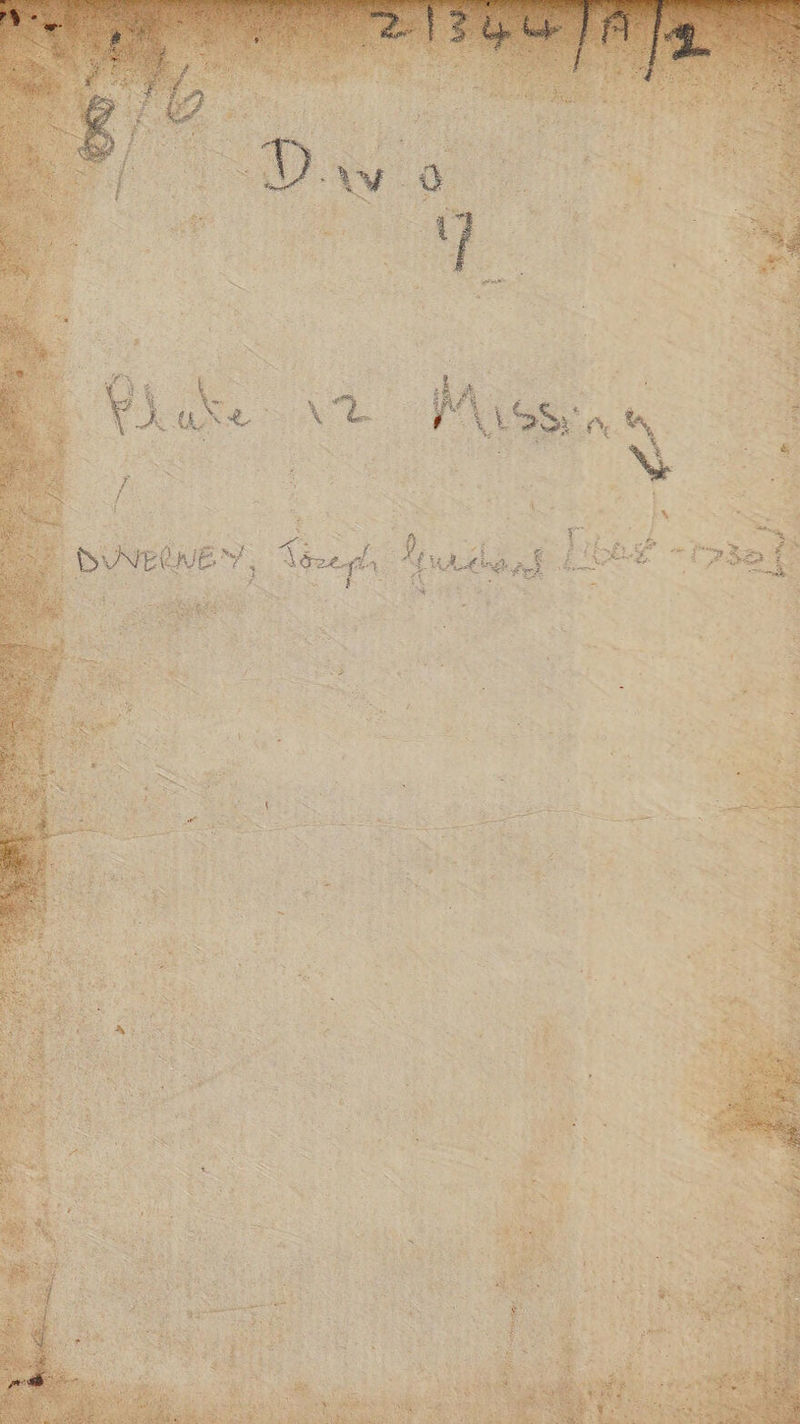 21344/A/2
8/6
D.iv o
17
Plate 12 Missing
DUVERNEY, Joseph Guichard [1648 - 1730]